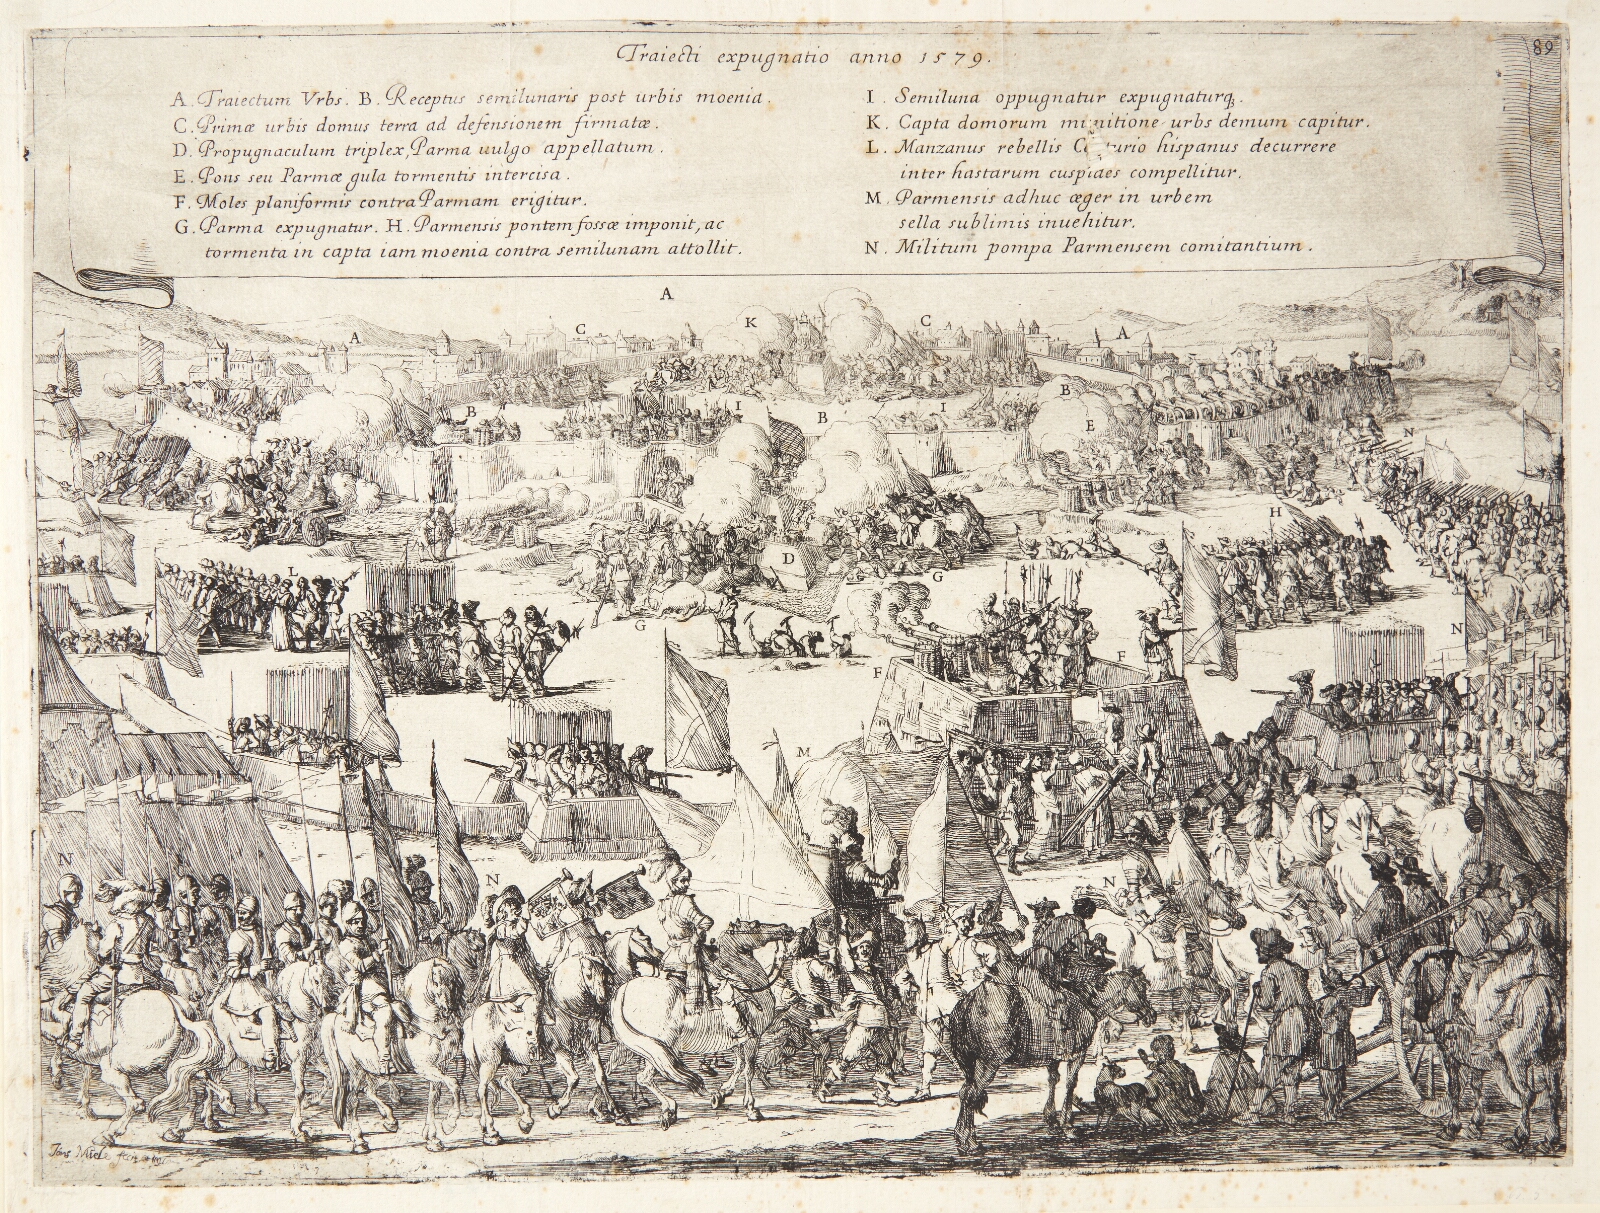 89
Traiecti expugnatio anno 1579.
A. Traiectum Vrbs. B. Receptus semilunaris post urbis moenia.
C. Primæ urbis domus terra ad defensionem firmatæ.
D. Propugnaculum triplex, Parma uulgo appellatum.
E. Pons seu Parmæ gula tormentis intercisa.
F. Moles planiformis contra Parmam erigitur.
G. Parma expugnatur. H. Parmensis pontem fossæ imponit, ac
tormenta in capta iam moenia contra semilunam attollit.
I. Semiluna oppugnatur expugnaturq.
K. Capta domorum munitione urbs demum capitur.
L. Manzanus rebellis Centurio hispanus decurrere
inter hastarum cuspides compellitur.
M. Parmensis adhuc æger in urbem
sella sublimis inuehitur.
N. Militum pompa Parmensem comitantium.
A
A C K C A
B I B I B E
N
H
L D G
G N
F F
M
N N N
Jans Miele